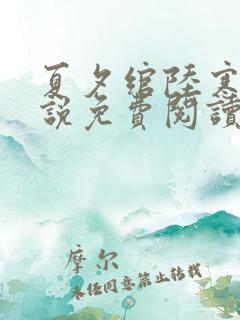 夏夕綰陸寒
說免費閱讀
摩尔
未经同意禁止转载